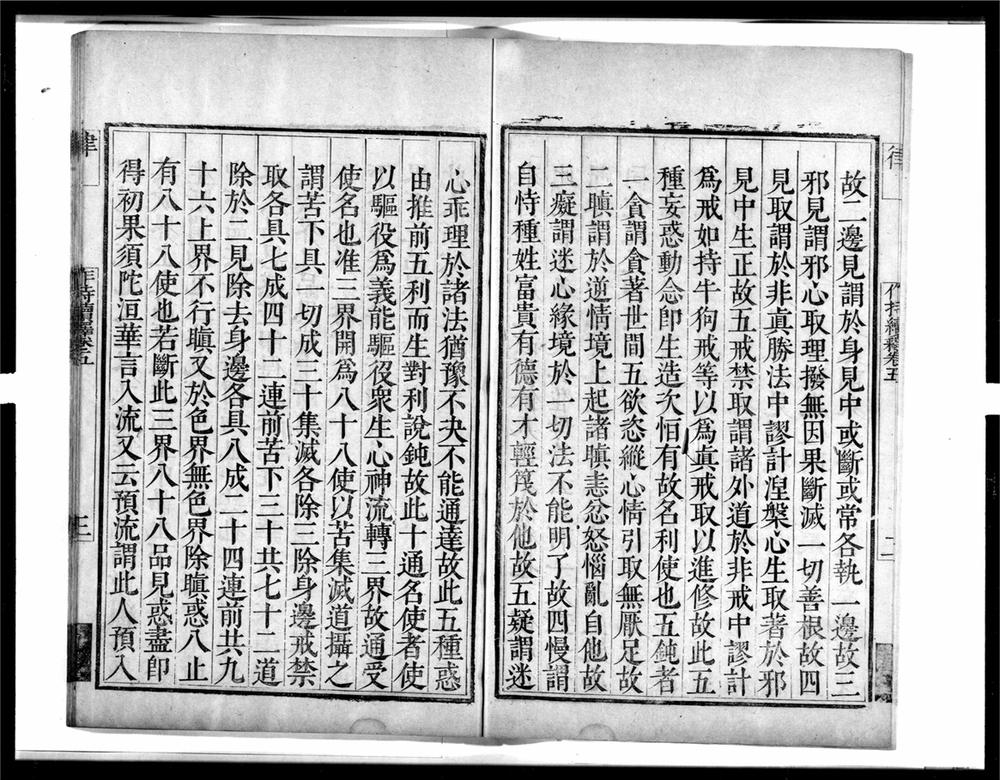 故二邊見謂於身見中或斷或常各執一邊故三
邪見謂邪心取理撥無因果斷滅一切善根故四
見取謂於非眞勝法中謬計涅槃心生取著於邪
見中生正故五戒禁取謂諸外道於非戒中謬計
爲戒如持牛狗戒等以爲眞戒取以進修故此五
種妄惑動念卽生造次恒有故名利使也五鈍者
一貪謂貪著世間五欲恣縱心情引取無厭足故
二瞋謂於逆情境上起諸瞋恚忿怒惱亂自他故
三癡謂迷心緣境於一切法不能明了故四慢謂
自恃種姓富貴有德有才輕篾於他故五疑謂迷
心乖理於諸法猶豫不决不能通達故此五種惑
由推前五利而生對利說鈍故此十通名使者使
以驅役爲義能驅役衆生心神流轉三界故通受
使名也准三界開爲八十八使以苦集滅道攝之
謂苦下具一切成三十集滅各除三除身邊戒禁
取各具七成四十二連前苦下三十共七十二道
除於二見除去身邊各具八成二十四連前共九
十六上界不行瞋又於色界無色界除瞋惑八止
有八十八使也若斷此三界八十八品見惑盡卽
得初果須陀洹華言入流又云預流謂此人預入
律
作持續釋卷五
二
律
作持續釋卷五
三